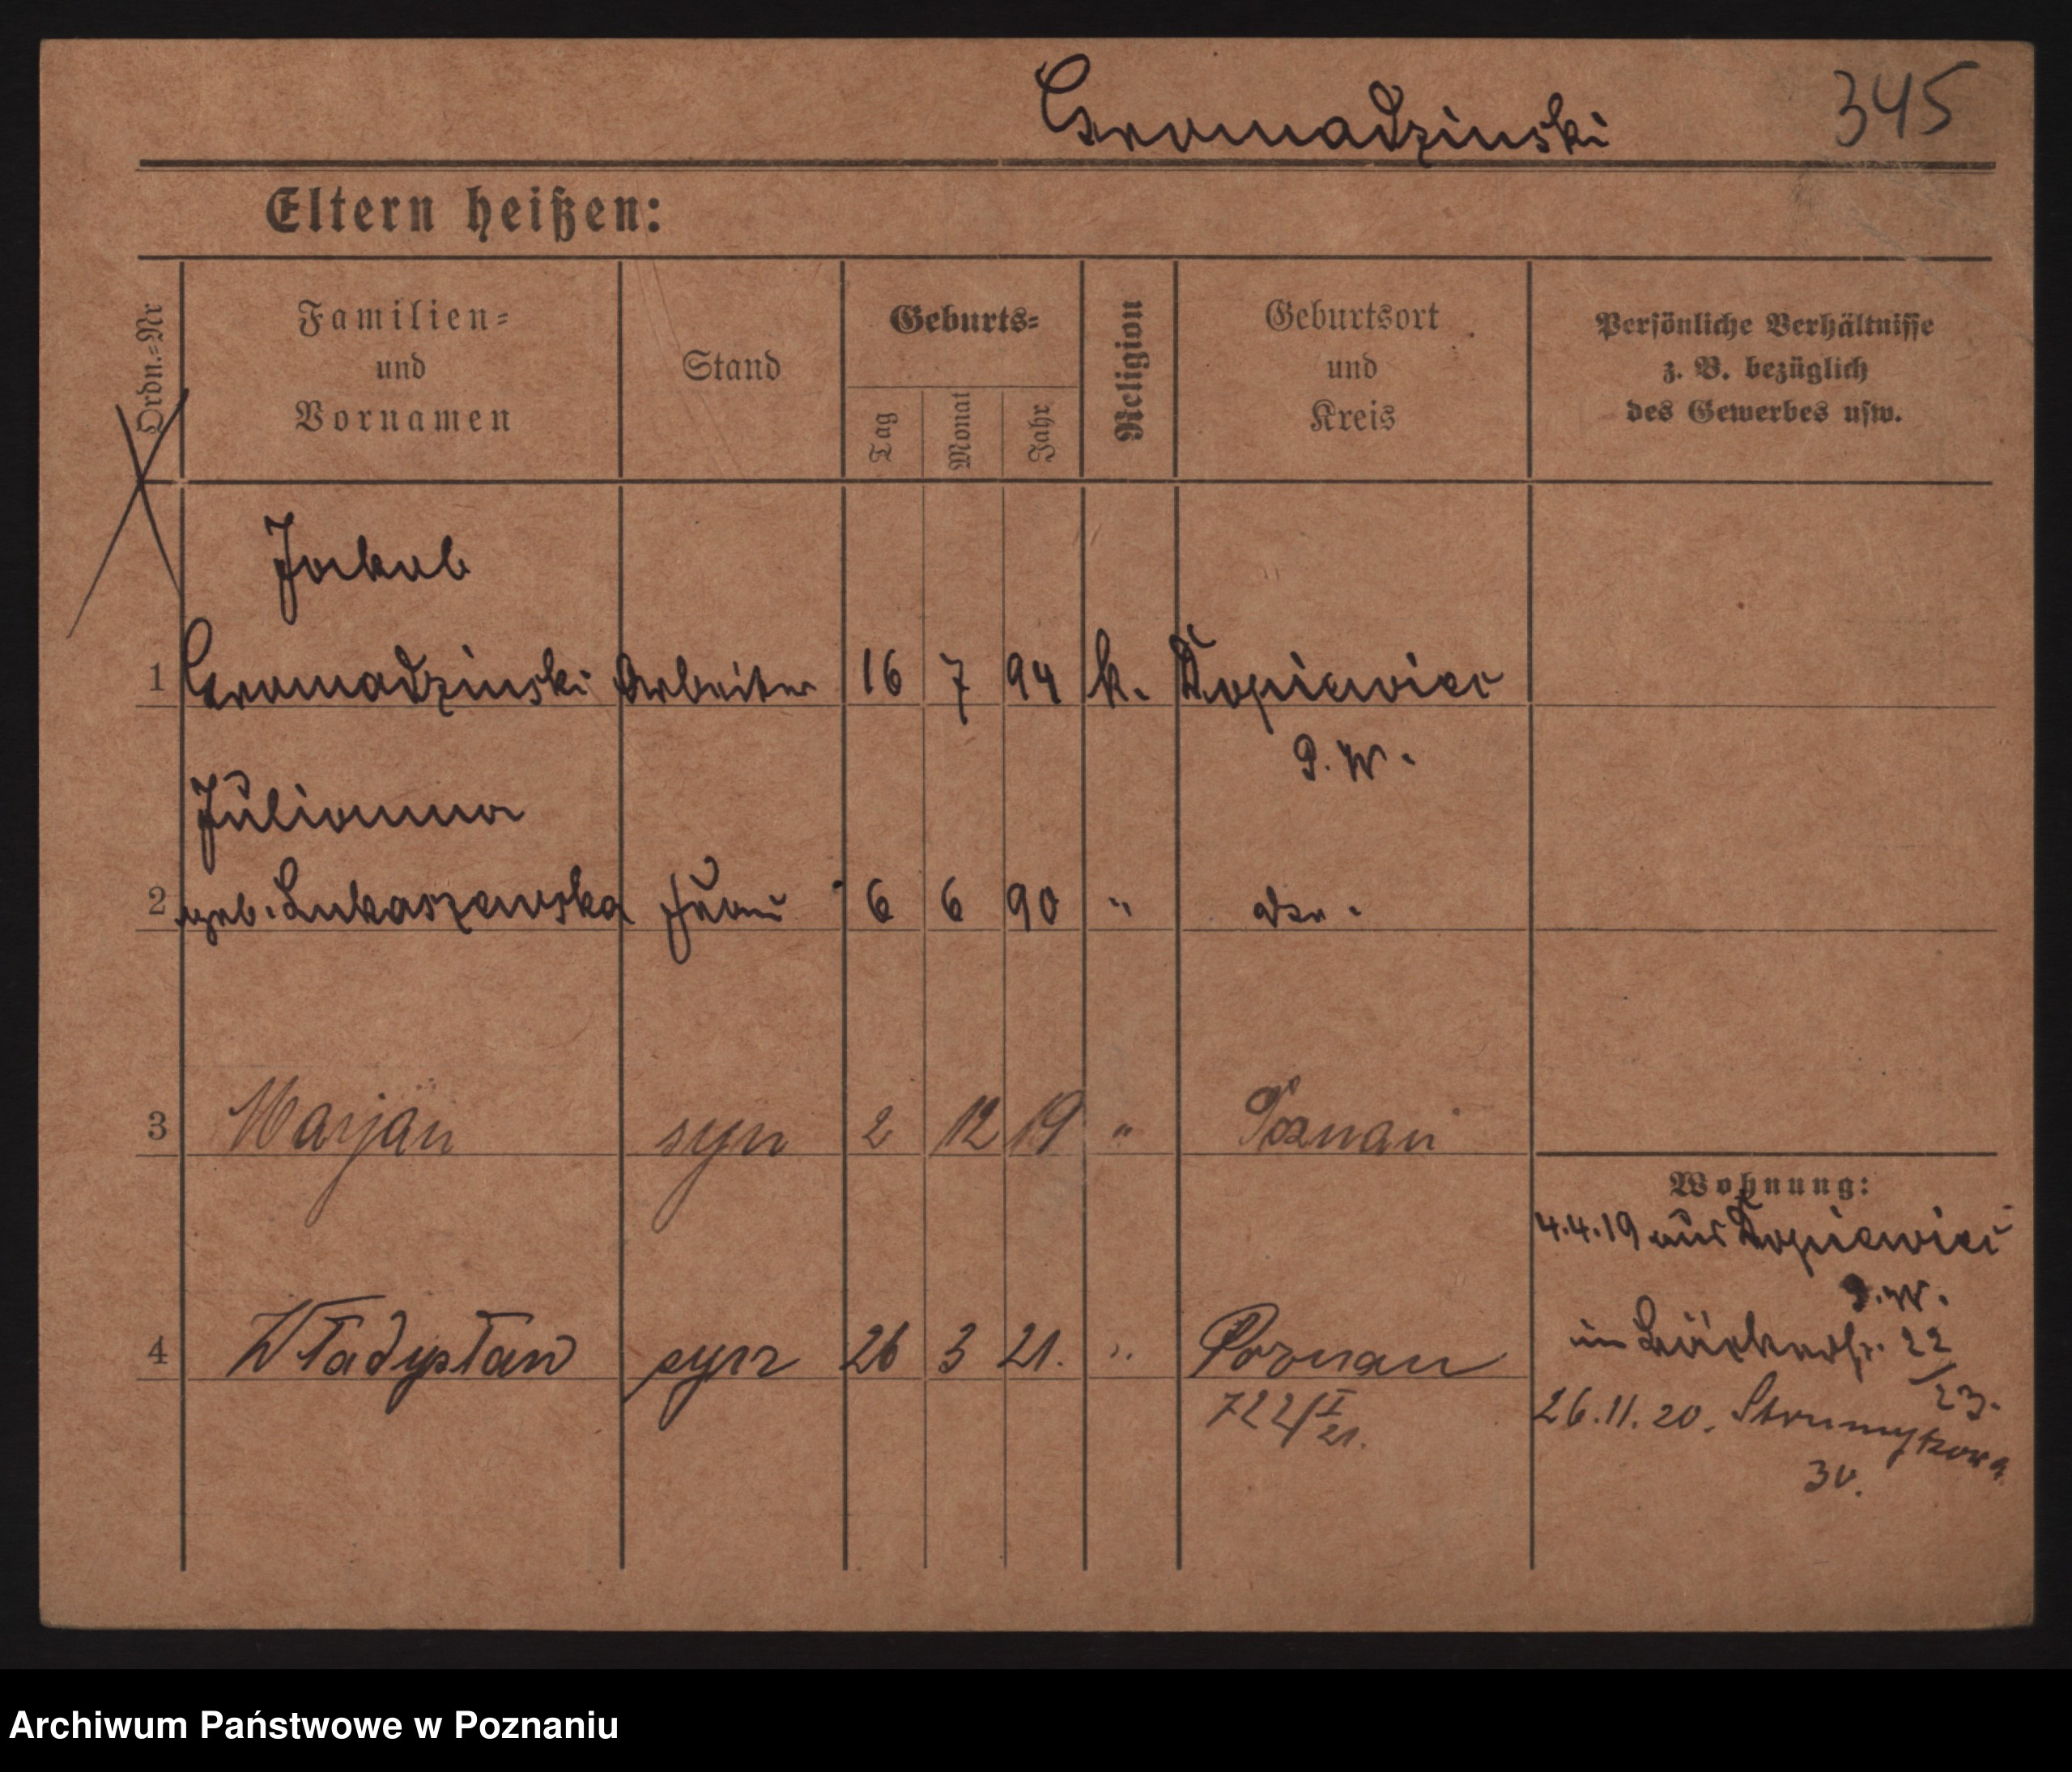 Gromadzinski 345
Eltern heißen:
Ordn.=Nr
Familien=
und
Vornamen
Stand
Geburts=
Tag
Monat
Jahr
Religion
Geburtsort
und
Kreis
Persönliche Verhältnisse
z. B. bezüglich
des Gewerbes usw.
Jakub
1 Gromadzinski Arbeiter 16 7 94 k. Kopiewiec
P. W.
Julianna
2 geb. Lukaszewska Frau 6 6 90 " das.
3 Marjan syn 2 12 19 " Poznań
Wohnung:
4.4.19 aus Kopiewiec
P. W.
4 Władysław syn 26 3 21. " Poznan
722/I
21.
im Bäckerstr. 22
/23.
26.11.20. Strumykowa
30.
Archiwum Państwowe w Poznaniu